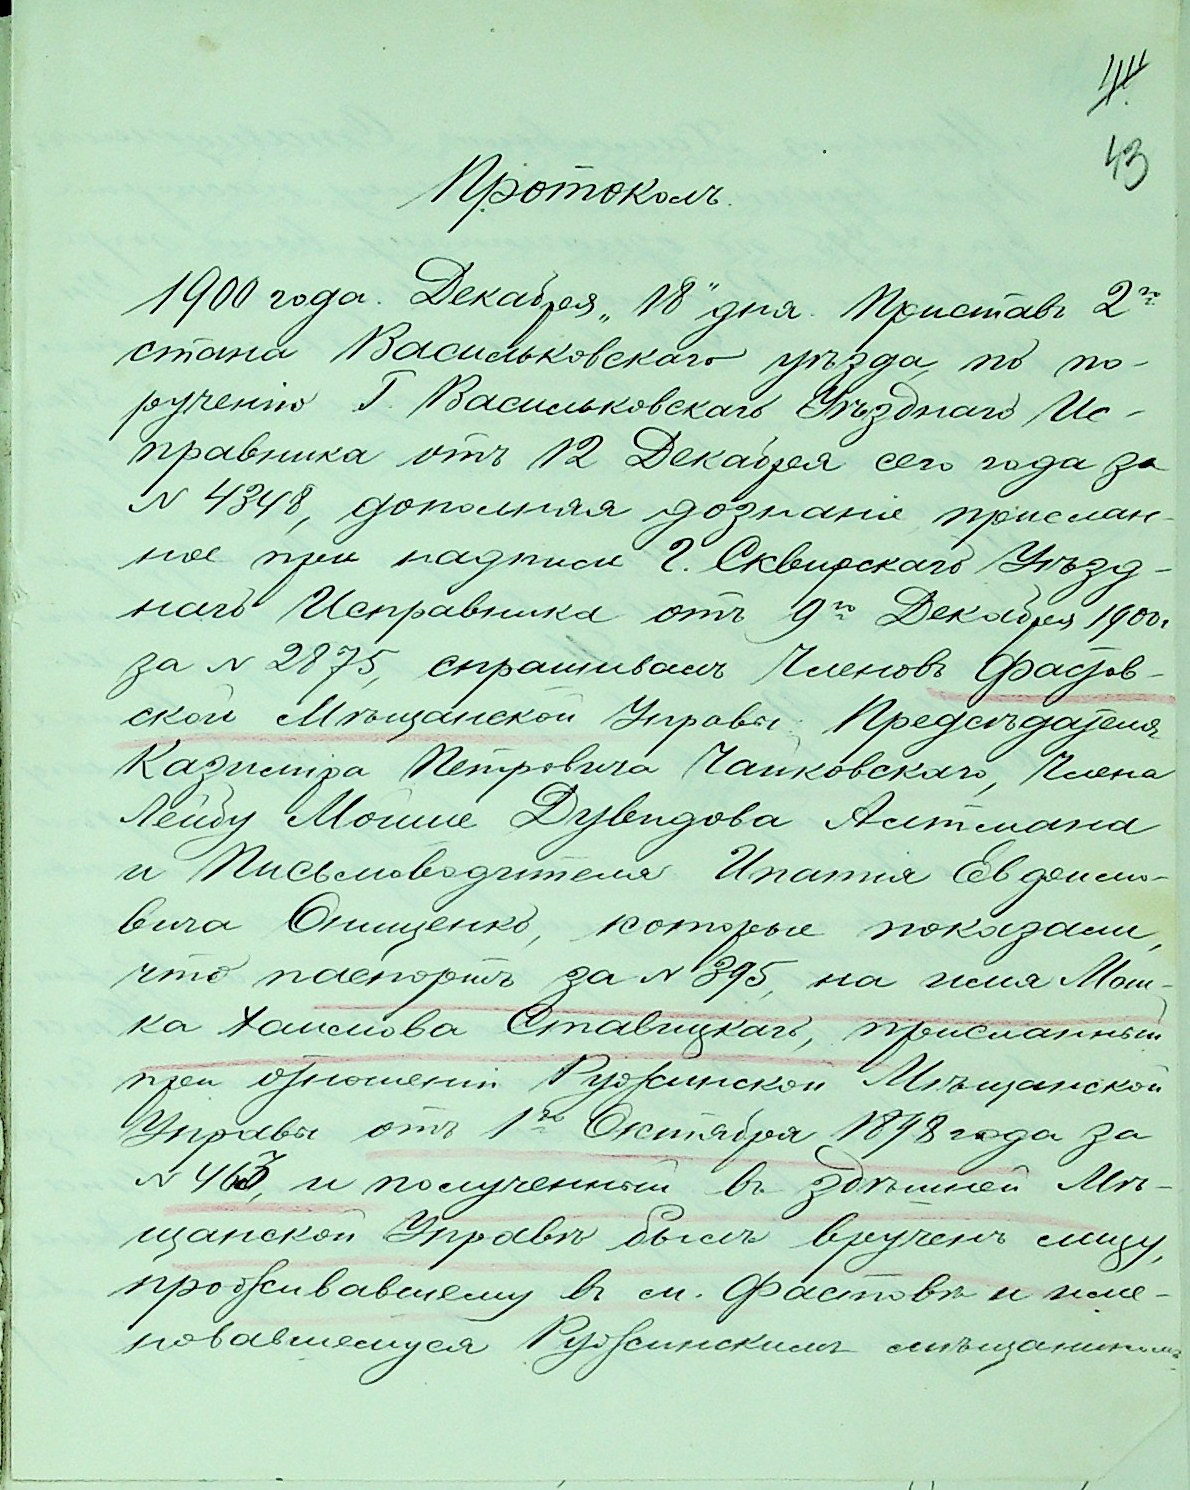 44
43
Протоколъ.
1900 года. Декабря „18" дня. Приставъ 2го
стана Васильковскаго уѣзда, по по-
рученію Г. Васильковскаго Уѣзднаго Ис-
правника отъ 12 Декабря сего года за
N 4348, дополняя дознаніе прислан-
ное при надписи Г. Сквирскаго Уѣзд-
наго Исправника отъ 9го Декабря 1900 г
за N 2875, спрашивалъ Членовъ Фастов-
ской Мѣщанской Управы: Предсѣдателя
Казиміра Петровича Чайковскаго, Члена
Лейбу Мошке Дувидова Алтмана
и Письмоводителя Ипатія Евдоимо-
вича Онищенко, которые показали,
что паспортъ за N 395, на имя Мош-
ка Хаимова Ставицкаго, присланный
при отношеніи Ружинской Мѣщанской
Управы отъ 1го Октября 1898 года за
N 463, и полученный въ здѣшней Мѣ-
щанской Управѣ былъ врученъ лицу,
проживавшему въ м. Фастовѣ и име-
новавшемуся Ружинскимъ мѣщаниномъ